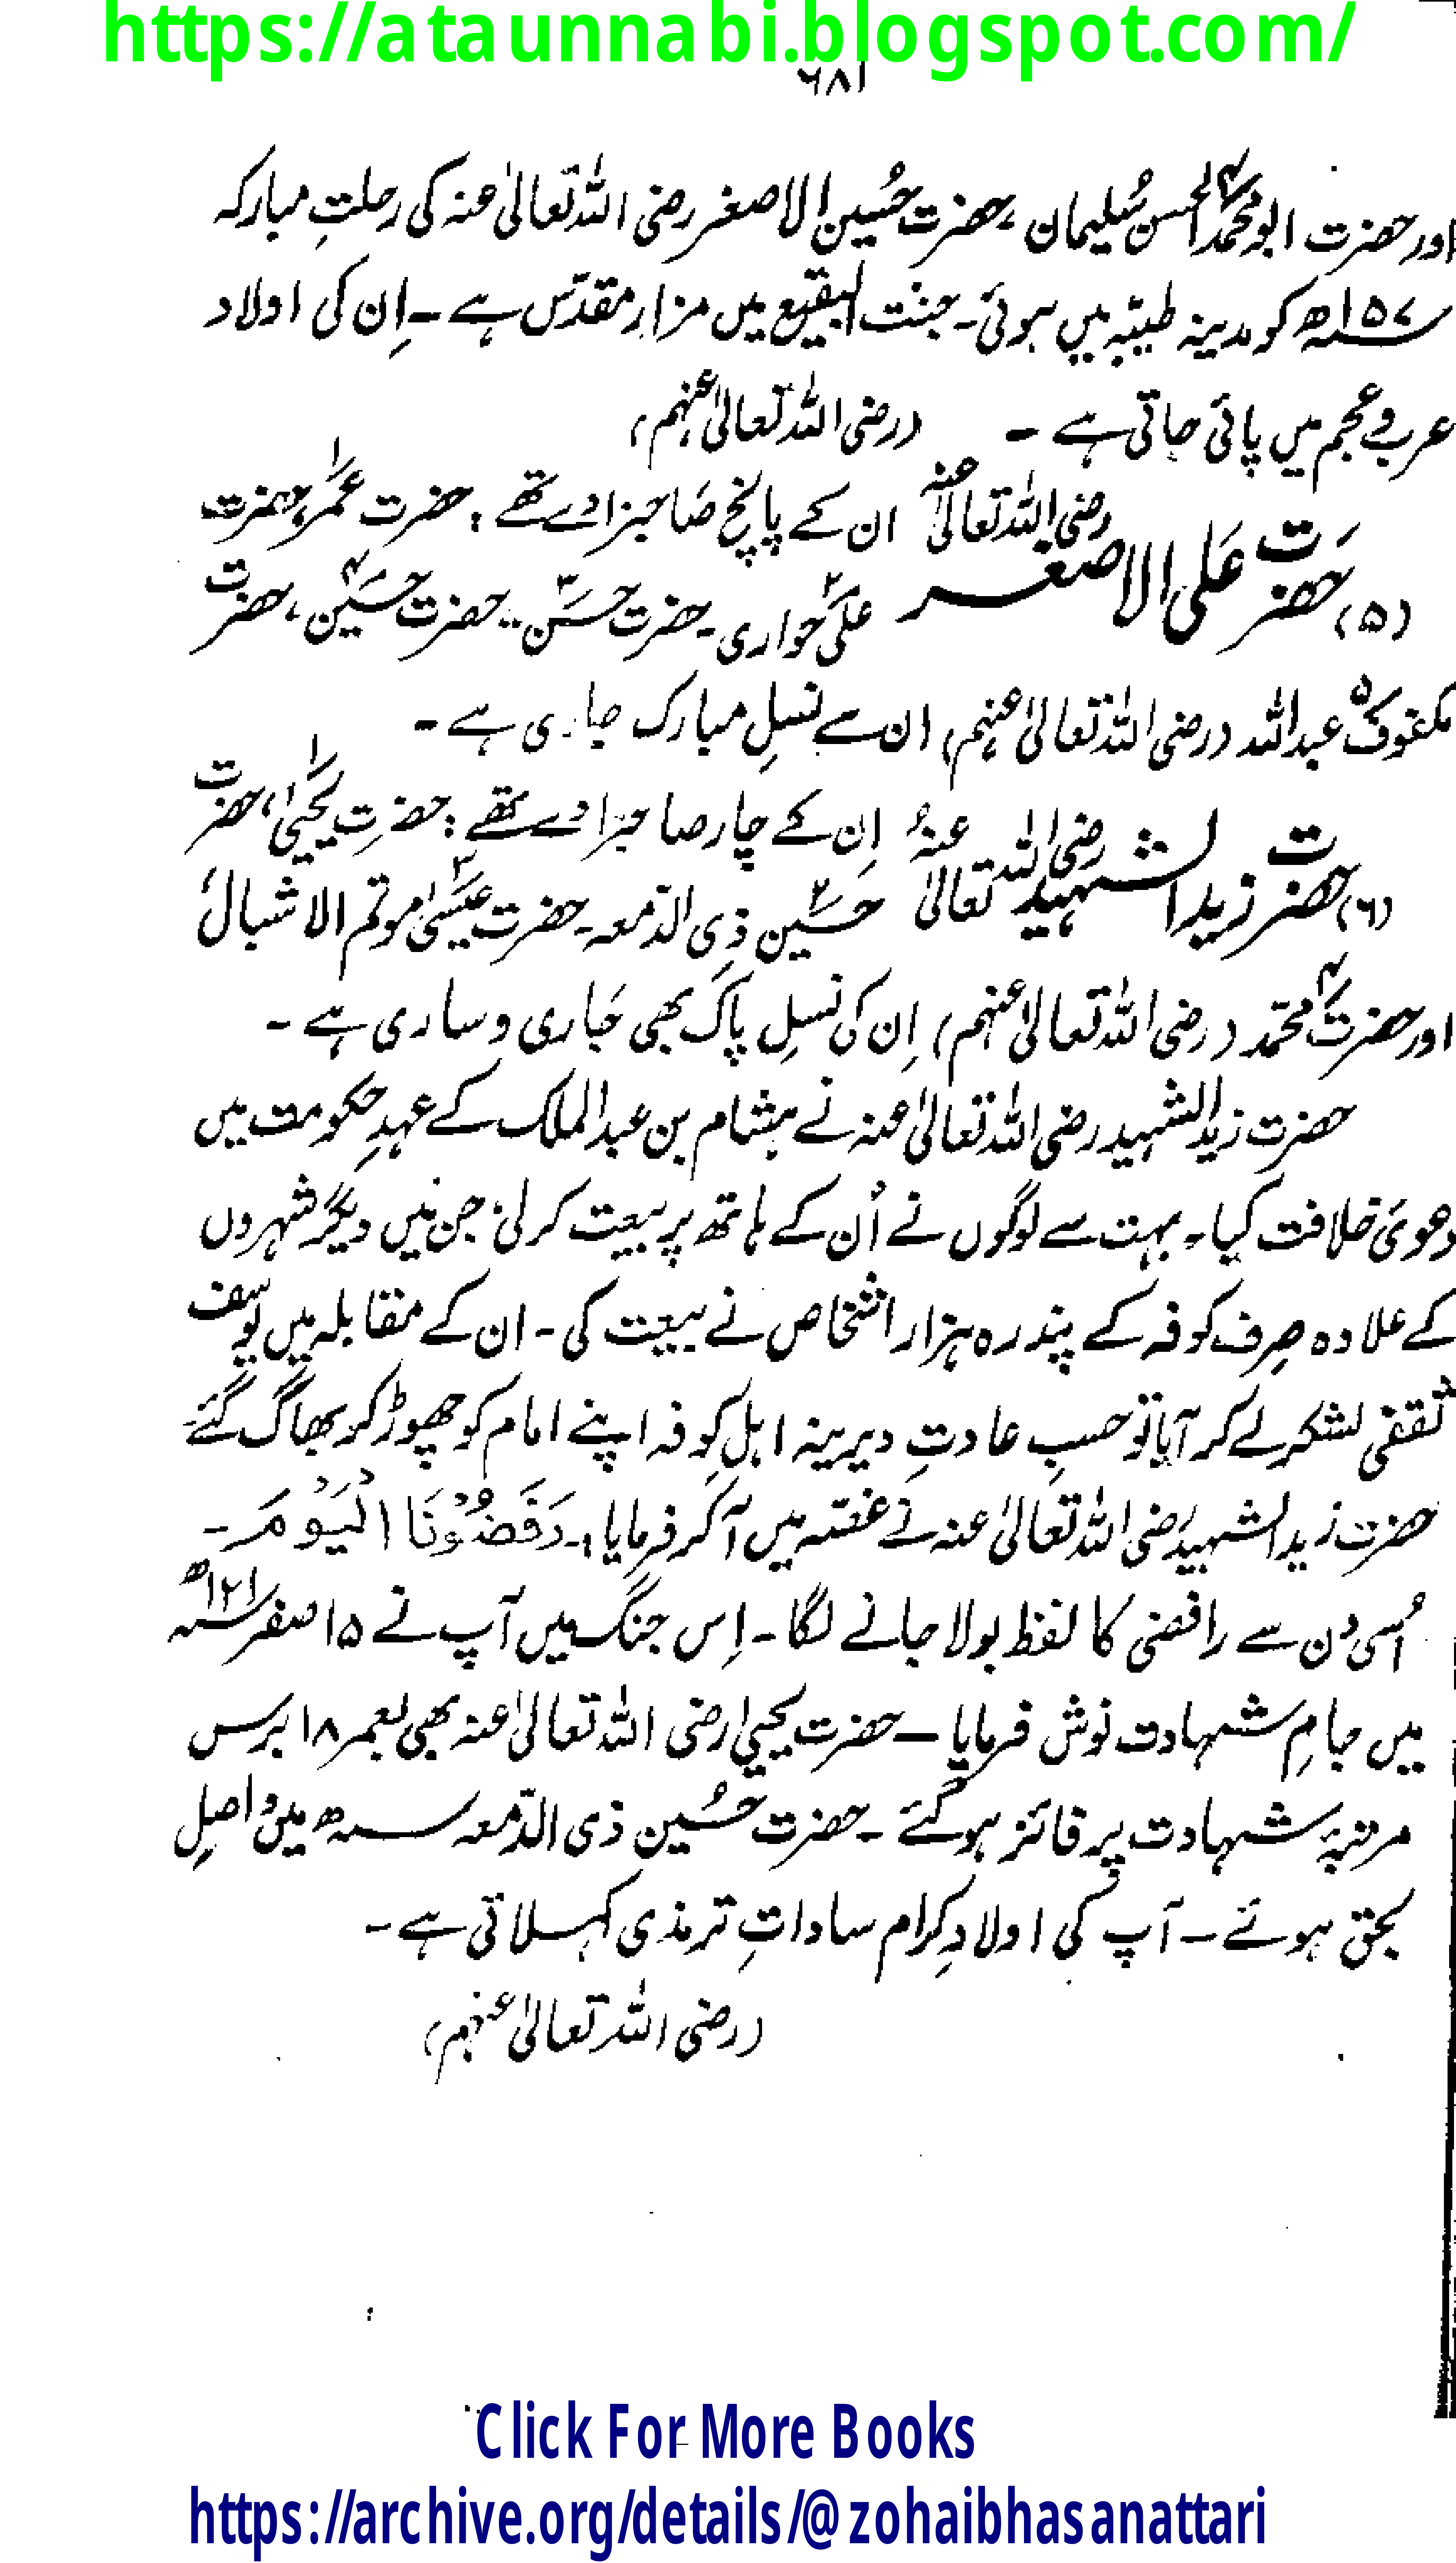 https://ataunnabi.blogspot.com/
۶۸۱
اور حضرت ابو محمد الحسن۴ سُلیمان ، حضرت حُسین الاصغر رضی اللہ تعالیٰ عنہ کی رحلتِ مبارکہ
۱۵۷ھ کو مدینہ طیبّہ میں ہوئی۔ جنّت البقیع میں مزارِ مقدّس ہے ۔ اِن کی اولاد
عرب و عجم میں پائی جاتی ہے ۔ (رضی اللہ تعالیٰ عنہم)
(۵) حضرت علی الاصغر رضی اللہ تعالیٰ عنہ ان کے پانچ صاحبزادے تھے : حضرت عمر۱، حضرت
علی۲ حواری۔ حضرت حسن۳۔ حضرت حسین۴، حضرت
مکفوف۵ عبداللہ (رضی اللہ تعالیٰ عنہم) ان سے نسلِ مبارک جاری ہے ۔
(۶) حضرت زید الشہید رضی اللہ تعالیٰ عنہُ اِن کے چار صاحبزادے تھے : حضرتِ یحییٰ۱، حضرت
حسین۲ ذِی الدّمعہ۔ حضرت عیسیٰ۳ موتم الاشبال
اور حضرت۴ محمّد (رضی اللہ تعالیٰ عنہم) اِن کی نسلِ پاک بھی جَاری و ساری ہے ۔
حضرت زید الشہید رضی اللہ تعالیٰ عنہ نے ہشام بن عبدالملک کے عہدِ حکومت میں
دعویٰ خلافت کیا۔ بہت سے لوگوں نے اُن کے ہاتھ پر بیعت کر لی، جن میں دیگر شہروں
کے علاوہ صِرف کوفہ کے پندرہ ہزار اشخاص نے بیعت کی ۔ ان کے مقابلہ میں یوسف
ثقفی لشکر لے کر آیا تو حسبِ عادتِ دیرینہ اہلِ کوفہ اپنے امام کو چھوڑ کر بھاگ گئے۔
حضرت زید الشہید رضی اللہ تعالیٰ عنہ نے غصّہ میں آ کر فرمایا :۔ رَفَضُوْنَا الْیَوْمَ ۔
اُسی دن سے رافضی کا لفظ بولا جانے لگا ۔ اِس جنگ میں آپ نے ۱۵ صفر ۱۲۱ھ
میں جامِ شہادت نوش فرمایا ۔ حضرت یحییٰ رضی اللہ تعالیٰ عنہ بھی بعمر ۱۸ برس
مرتبۂ شہادت پر فائز ہو گئے ۔ حضرت حُسین ذی الدّمعہ سنہ ھ میں واصلِ
بحق ہوئے ۔ آپ کی اولادِ کرام ساداتِ ترمذی کہلاتی ہے ۔
(رضی اللہ تعالیٰ عنہم)
Click For More Books
https://archive.org/details/@zohaibhasanattari